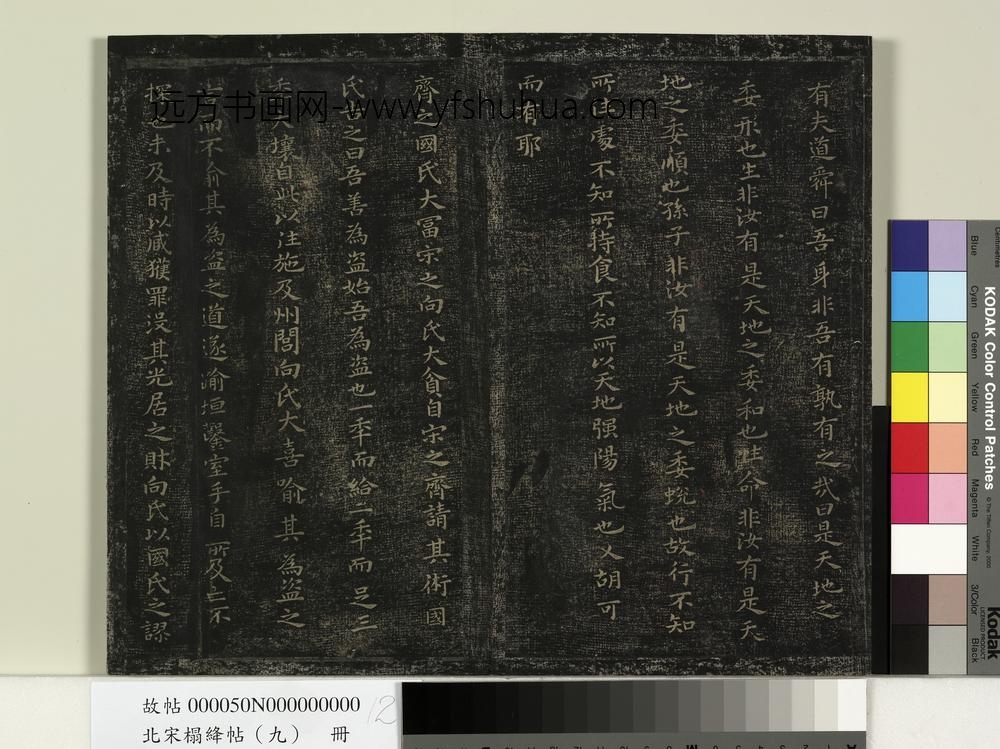 有夫道舜曰吾身非吾有孰有之哉曰是天地之
委形也生非汝有是天地之委和也性命非汝有是天
地之委順也孫子非汝有是天地之委蛻也故行不知
所處不知所持食不知所以天地强陽氣也又胡可
而有耶
齊之國氏大富宋之向氏大貧自宋之齊請其術國
氏之曰吾善為盜始吾為盜也一年而給二年而足三
壤自此以往施及州閭向氏大喜喻其為盜之
而不俞其為盜之道遂踰垣鑿室手自所及亡不
未及時以贓獲罪没其光居之財向氏以國氏之謬
远方书画网-www.yfshuhua.com
故帖 000050N000000000
北宋榻絳帖（九） 冊
12
KODAK Color Control Patches
© The Tiffen Company, 2000
Kodak
LICENSED PRODUCT
Centimetres
Blue
Cyan
Green
Yellow
Red
Magenta
White
3/Color
Black